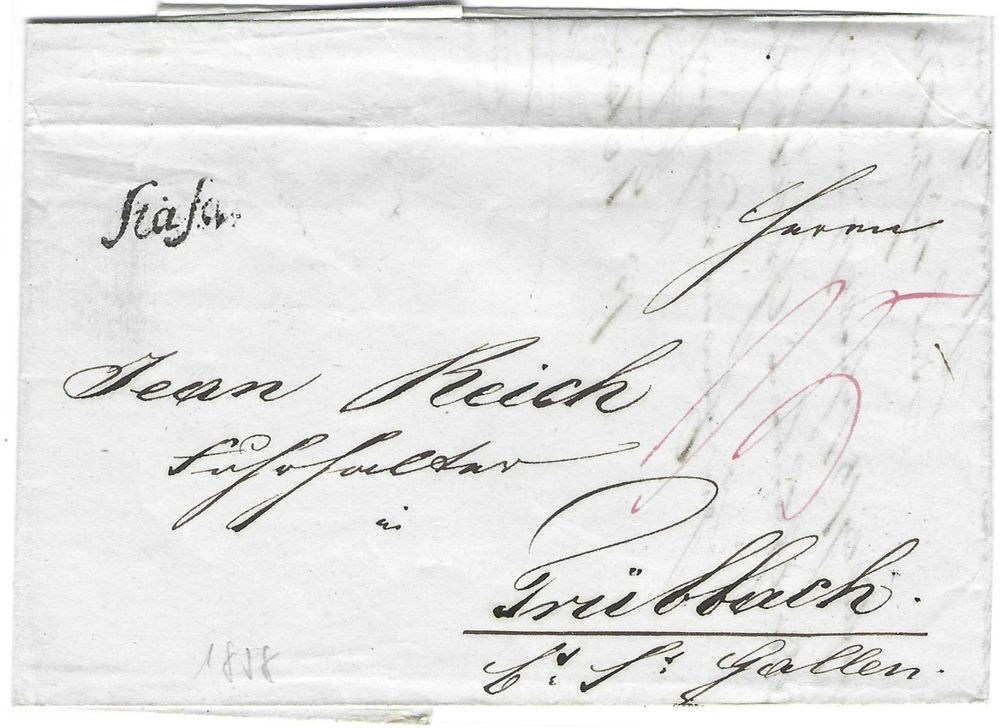 Stäfa.
Herrn
15
Jean Reich
Fuhrhalter
in
Trübbach.
Ct. St. Gallen.
1858